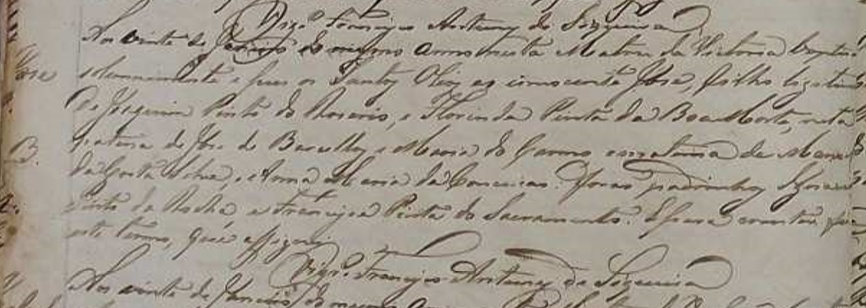 Vigrº Francisco Antunes de Siqueira
Aos vinte de Janeiro do mesmo anno nesta Matriz da Victoria baptisei
José solemnemente e puz os Santos Oleos ao innocente José, filho legitimo
de Joaquim Pinto do Rosario, e Florinda Pinta da Boa Morte, neto
paterno de José de Barcellos, e Maria do Carmo e materno de Manoel
da Costa Silva, e Anna Maria da Conceicao. Foraõ padrinhos
Pinto da Rocha e Francisca Pinta do Sacramento. E para constar fiz
este termo, que assignei
Vigrº Francisco Antunes de Siqueira
Aos vinte de Janeiro do mesmo anno